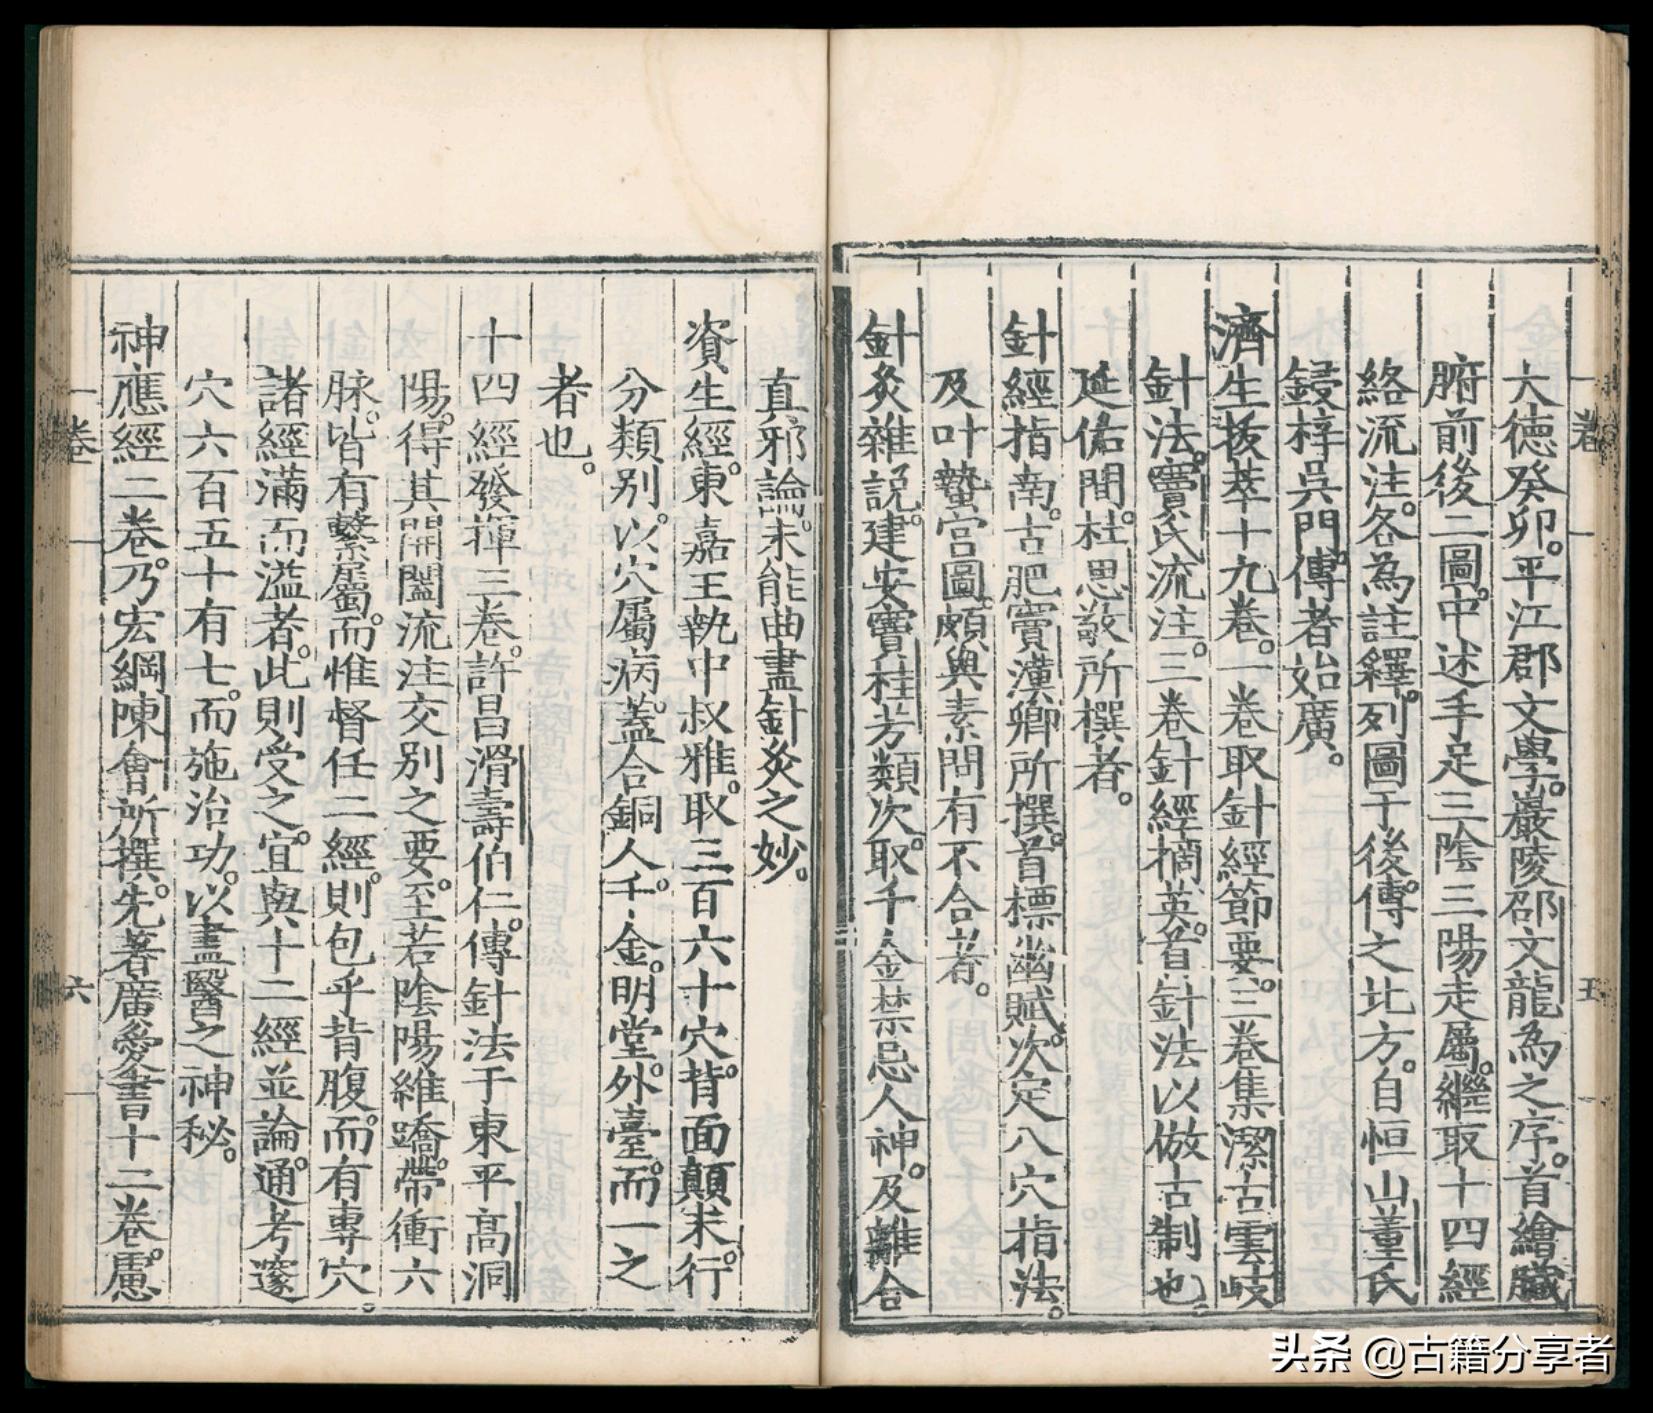 大德癸卯。平江郡文學。巖陵邵文龍為之序。首繪臟
腑前後二圖。中述手足三陰三陽走屬。繼取十四經
絡流注。各為註釋。列圖于後。傳之北方。自恒山董氏
鋟梓吳門。傳者始廣。
濟生拔萃十九卷。一卷取針經節要。二卷集潔古雲岐
針法。竇氏流注。三卷針經摘英。首針法以倣古制也
延佑間。杜思敬所撰者。
針經指南。古肥竇漢卿所撰。首標幽賦。次定八穴指法。
及叶蟄宮圖。頗與素問有不合者。
針灸雜說。建安竇桂芳類次。取千金禁忌人神。及離合
卷一
五
真邪論。未能曲盡針灸之妙。
資生經。東嘉王執中叔雅。取三百六十穴。背面顛末。行
分類別。以穴屬病。蓋合銅人。千金。明堂。外臺。而一之
者也。
十四經發揮三卷。許昌滑壽伯仁。傳針法于東平高洞
陽。得其開闔流注交別之要。至若陰陽維蹻。帶衝六
脉。皆有繫屬。而惟督任二經。則包乎背腹。而有專穴。
諸經滿而溢者。此則受之。宜與十二經並論。通考邃
穴六百五十有七。而施治功。以盡醫之神秘。
神應經二卷。乃宏綱陳會所撰。先著廣愛書十二卷。慮
卷一
六
头条 @古籍分享者